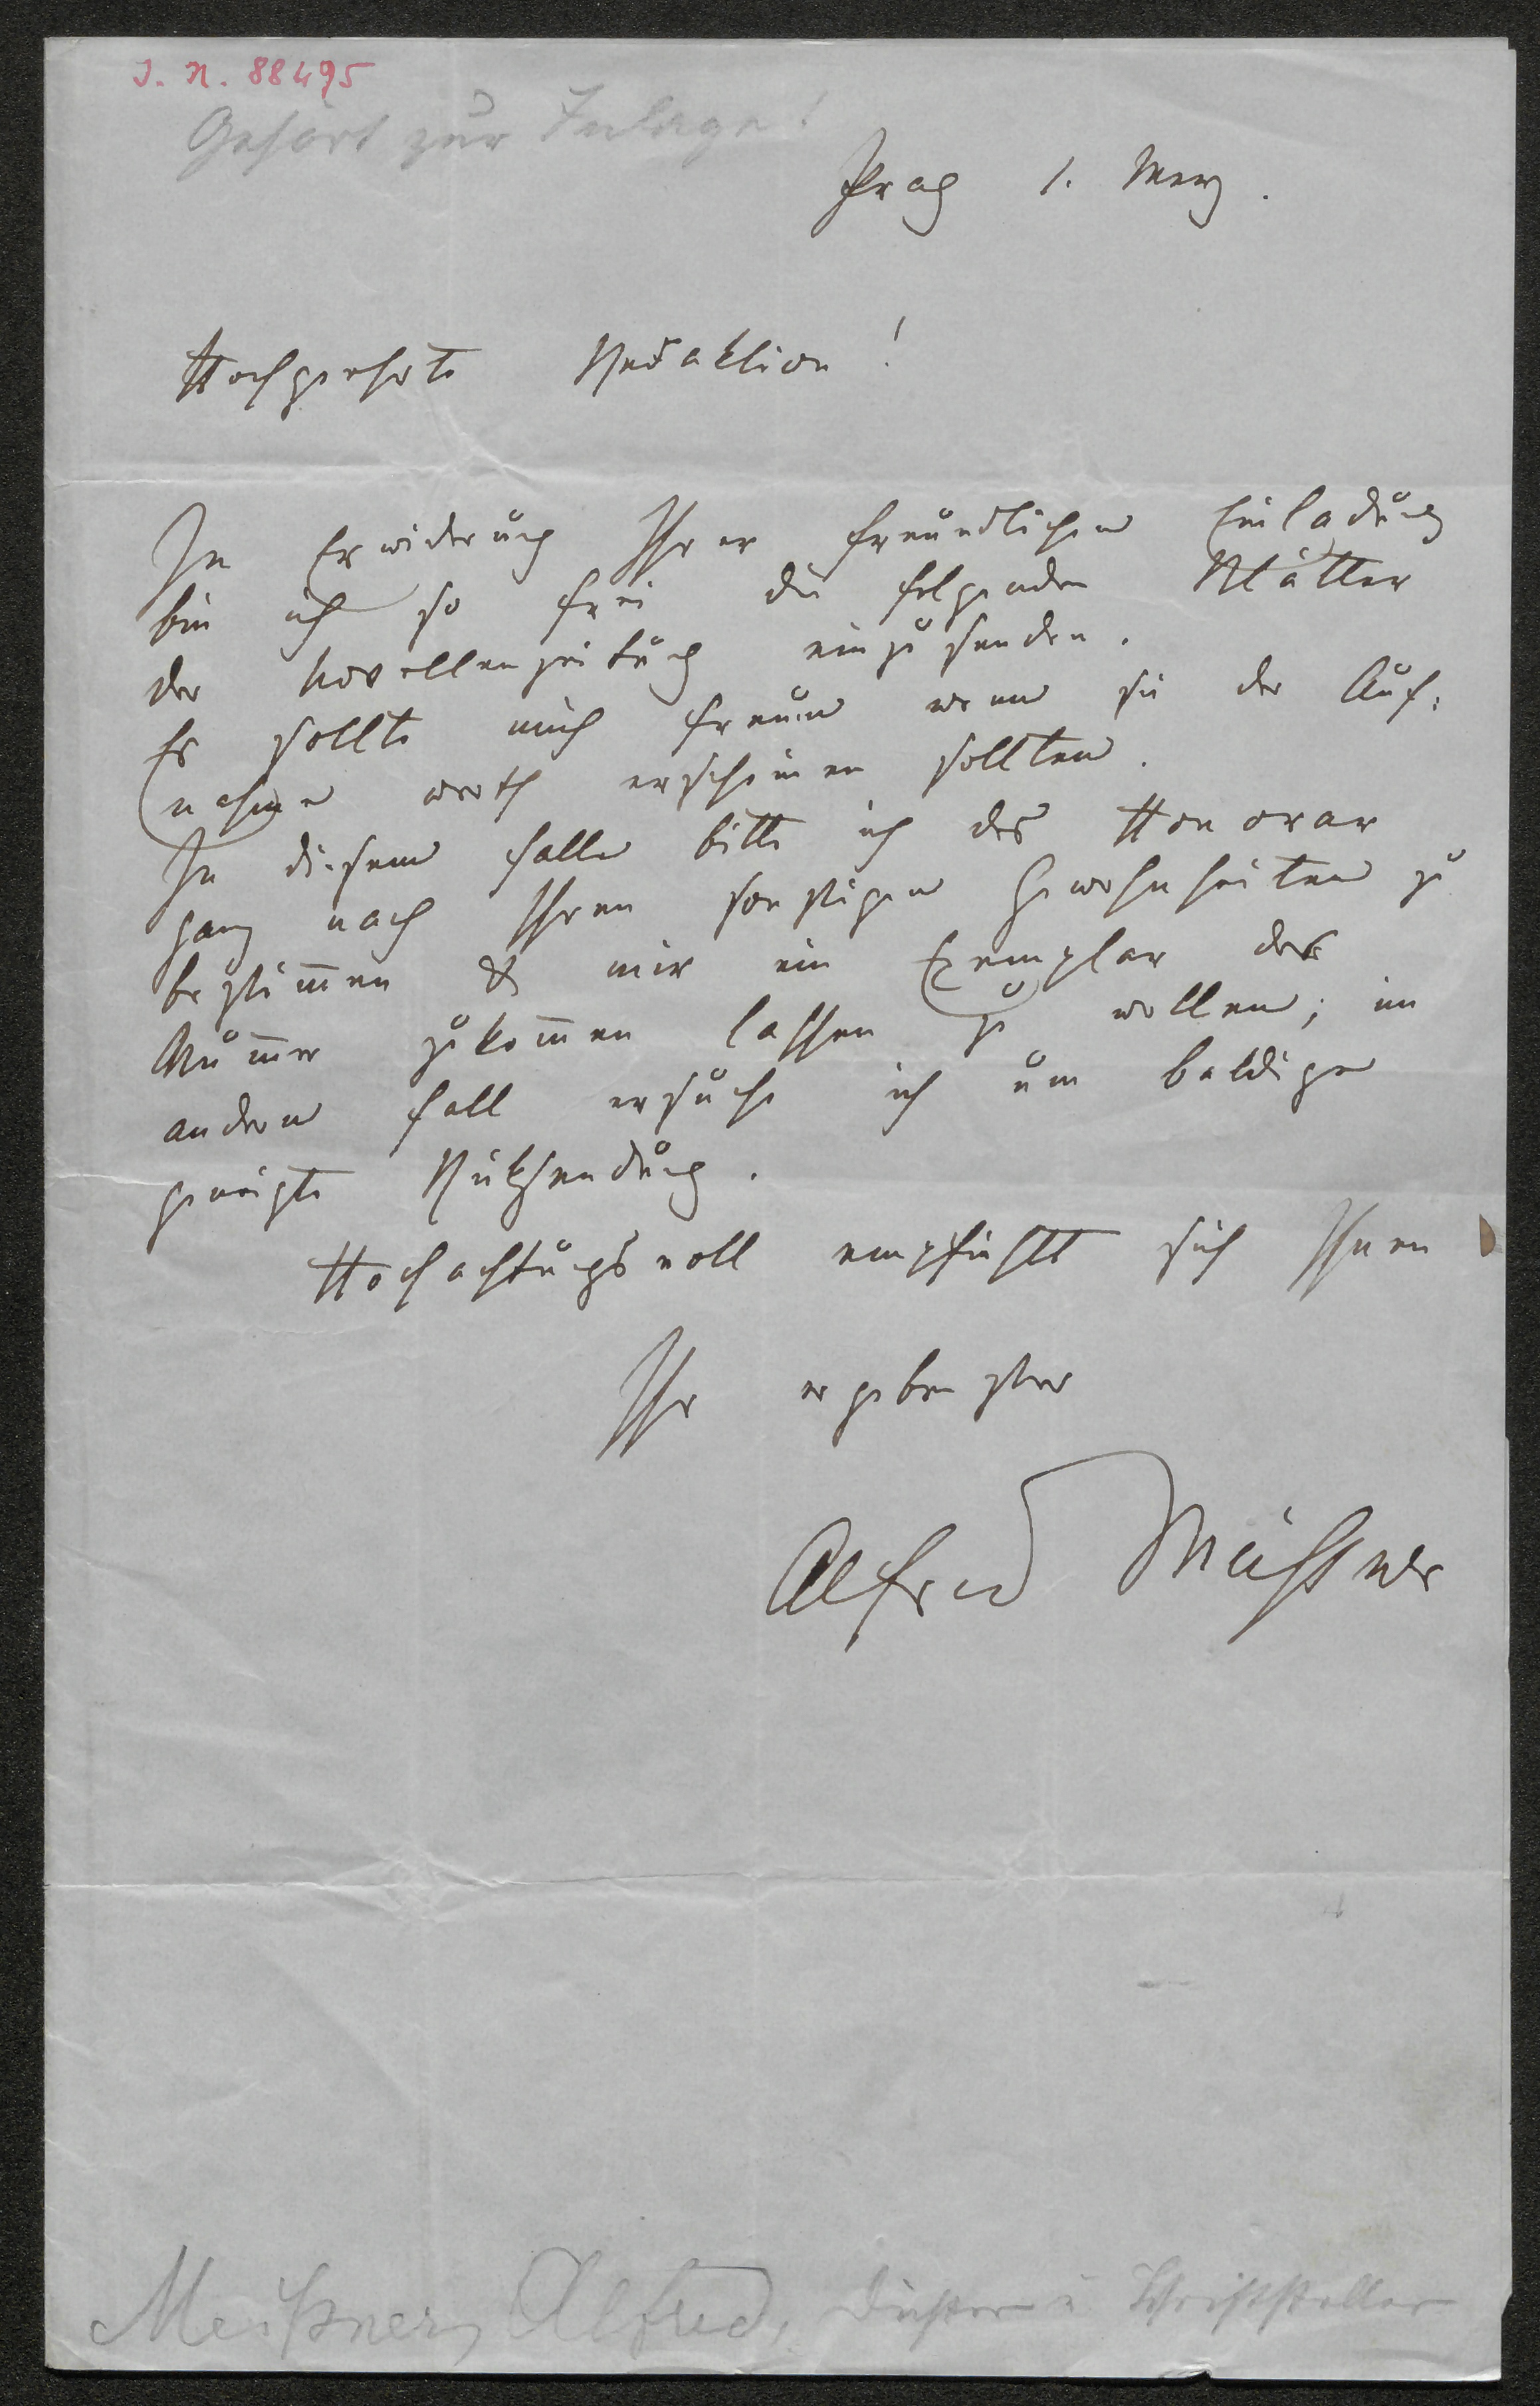 J. N. 88495
Gehört zur Inlage!
Prag 1. Merz.
Hochgeehrte Redaktion!
In Erwiderung Ihrer freundlichen Einladung
bin ich so frei die folgenden Blätter
der Novellenzeitung einzusenden.
Es sollte mich freuen wenn sie der Auf-
nahme werth erscheinen sollten.
In diesem Falle bitte ich das Honorar
ganz nach Ihren sonstigen Gewohnheiten zu
bestim̅en & mir ein Exemplar der
Num̅er zukom̅en lassen zu wollen; im
andern Fall ersuche ich um baldige
geneigte Rüksendung.
Hochachtungsvoll empfiehlt sich Ihnen
Ihr ergebenster
Alfred Meißner
Meißner, Alfred, Dichter u Schriftsteller